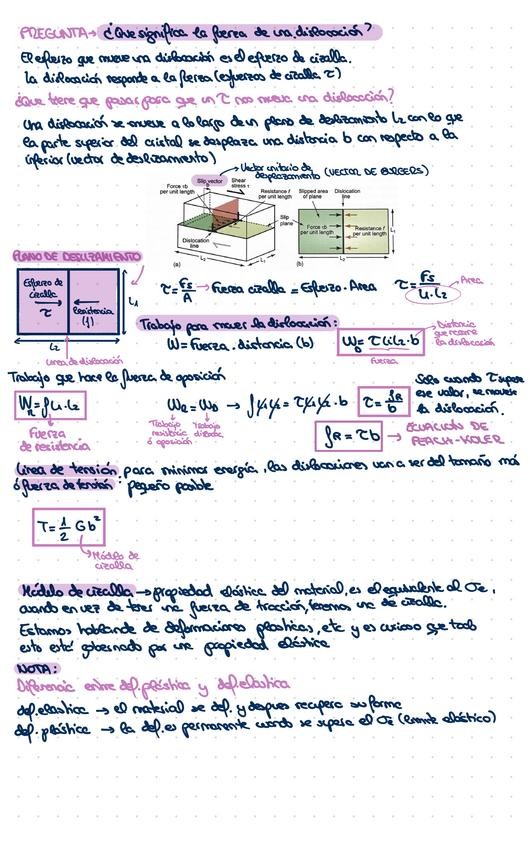 PREGUNTA → ¿Que significa la fuerza de una dislocación?
El esfuerzo que mueve una dislocación es el esfuerzo de cizalla.
La dislocación responde a la fuerza (esfuerzos de cizalla τ)
¿Que tiene que pasar para que un τ nos mueva una dislocación?
Una dislocación se mueve a lo largo de un plano de deslizamiento L2 con lo que
la parte superior del cristal se desplaza una distancia b con respecto a la
inferior (vector de deslizamiento)
Vector unitario de
desplazamiento (VECTOR DE BURGERS)
Slip vector
b
Shear
stress τ
Force τb
per unit length
Resistance f
per unit length
Slip
plane
Dislocation
line
L2
L1
(a)
Slipped area
of plane
Dislocation
line
Force τb
per unit length
Resistance f
per unit length
L1
L2
(b)
PLANO DE DESLIZAMIENTO
Esfuerzo de
cizalla
τ
Resistencia
(f)
L1
L2
Linea de dislocación
τ = Fs/A → Fuerza cizalla = Esfuerzo · Area
τ = Fs/L1·L2
Area
Trabajo para mover la dislocación:
W = Fuerza · distancia (b)
W = τL1L2·b
Fuerza
Distancia
que recorre
la dislocación
Trabajo que hace la fuerza de oposición
WR = f L1·L2
Fuerza
de resistencia
WR = WD → f L1L2 = τL1L2·b
Trabajo
resistencia
ó oposición
Trabajo
τ = fR/b
Solo cuando τ supere
ese valor, se mueve
la dislocación.
fR = τb → ECUACIÓN DE
PEACH-KOLER
Linea de tensión para minimar energía, las dislocaciones van a ser del tamaño más
ó fuerza de tensión: pequeño posible
T = 1/2 Gb²
Módulo de
cizalla
Módulo de cizalla → propiedad elástica del material, es el equivalente al σe,
cuando en vez de tener una fuerza de tracción, tenemos una de cizalla.
Estamos hablando de deformaciones plasticas, etc y es curioso que todo
esto esté gobernado por una propiedad elástica
NOTA:
Diferencia entre def. plástica y def. elastica
def. elastica → el material se def. y despues recupera su forma
def. plástica → la def. es permanente cuando se supera el σe (limite elástico)